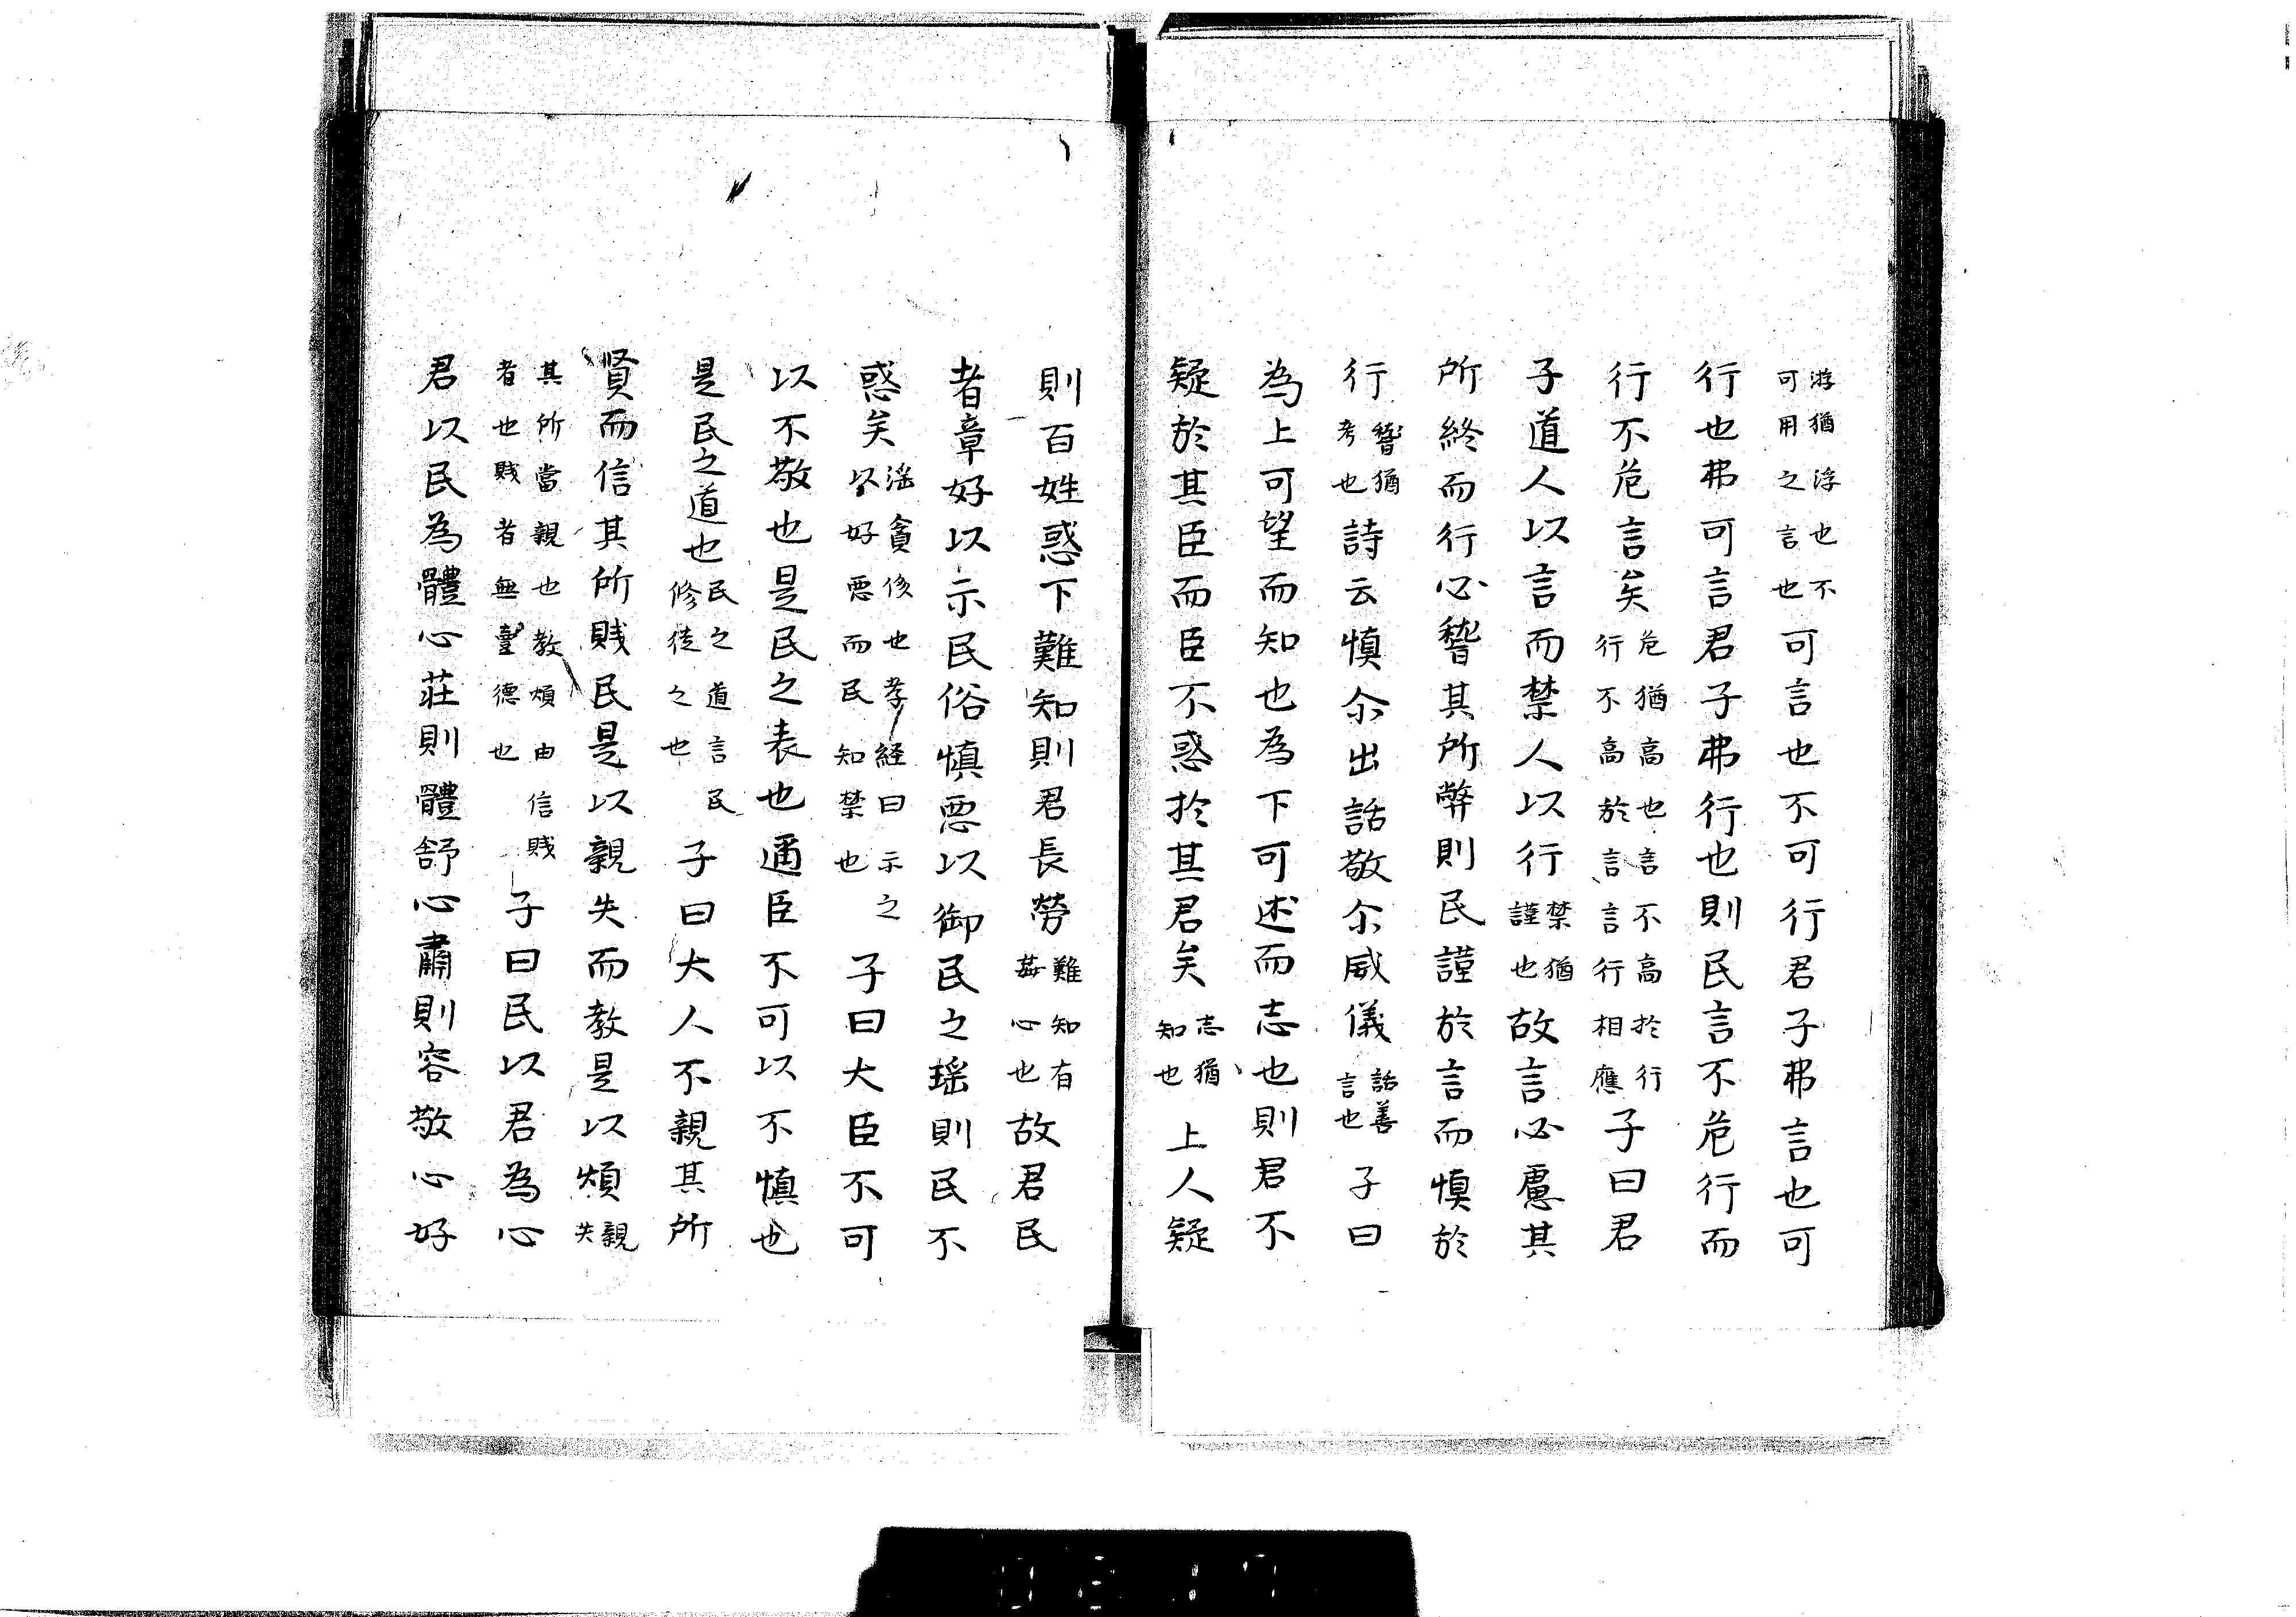 游猶浮也不可用之言也可言也不可行君子弗言也可
行也弗可言君子弗行也則民言不危行而
行不危言矣危猶高也言不高於行行不高於言言行相應子曰君
子道人以言而禁人以行禁猶謹也故言必慮其
所終而行必稽其所弊則民謹於言而慎於
行稽猶考也詩云慎尒出話敬尒威儀話善言也子曰
為上可望而知也為下可述而志也則君不
疑於其臣而臣不惑於其君矣志猶知也上人疑
則百姓惑下難知則君長勞難知有姦心也故君民
者章好以示民俗慎惡以御民之瑶則民不
惑矣滛貪侈也孝経曰示之以好惡而民知禁也子曰大臣不可
以不敬也是民之表也邇臣不可以不慎也
是民之道也民之道言民修徒之也子曰大人不親其所
賢而信其所賎民是以親失而教是以煩親失
其所當親也教煩由信賎者也賎者無壹德也子曰民以君為心
君以民為體心莊則體舒心肅則容敬心好